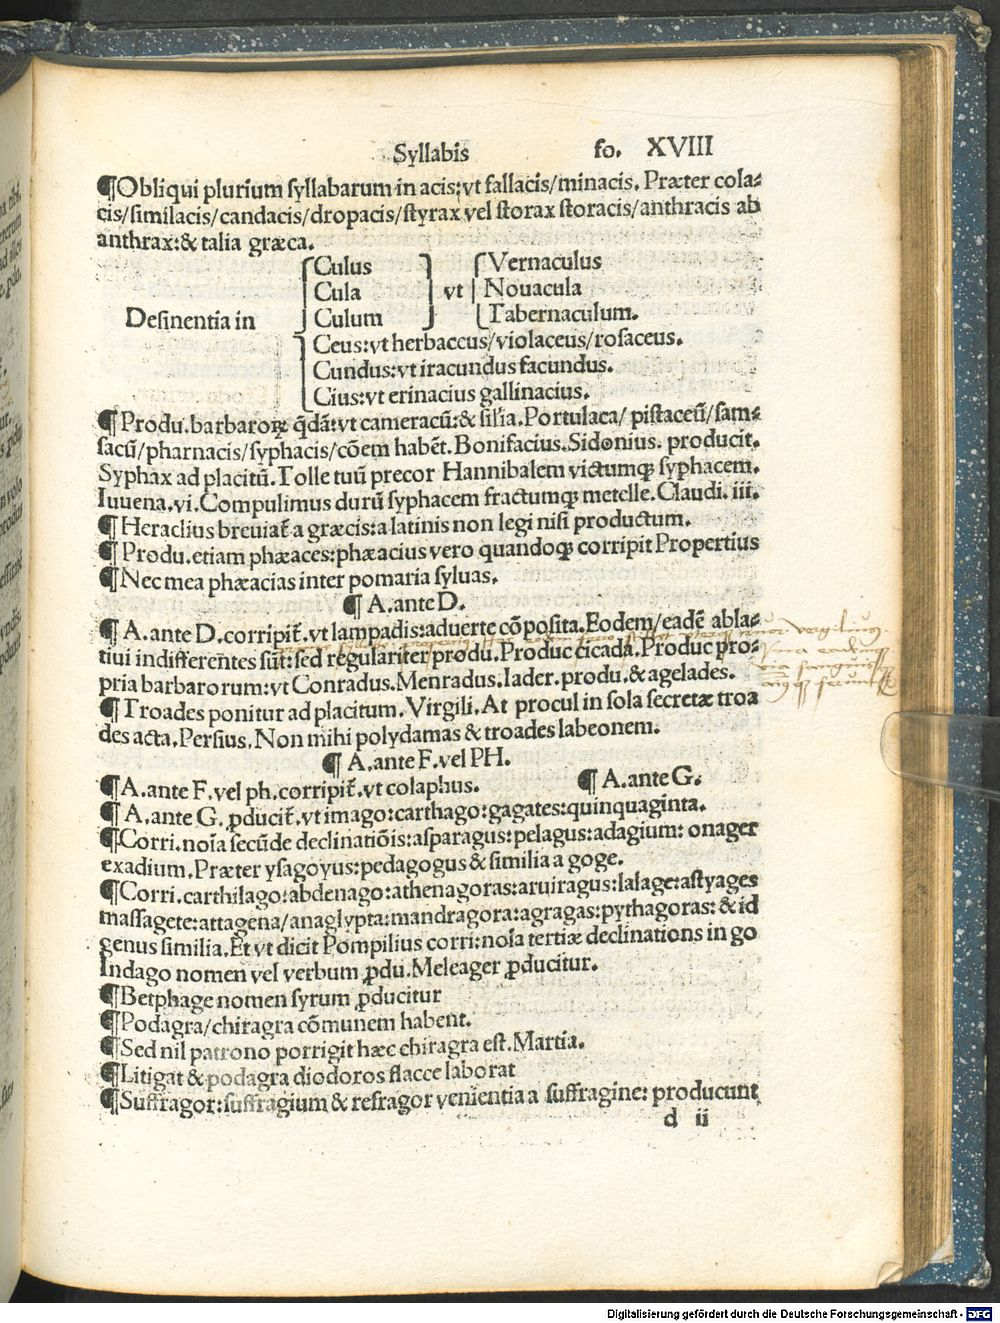 Syllabis fo. XVIII
¶Obliqui plurium ſyllabarum in acis:vt fallacis/minacis. Præter cola⸗
cis/ſimilacis/candacis/dropacis/ſtyrax vel ſtorax ſtoracis/anthracis ab
anthrax:& talia græca.
Culus Vernaculus
Cula vt Nouacula
Deſinentia in Culum Tabernaculum.
Ceus:vt herbaceus/violaceus/roſaceus.
Cundus:vt iracundus facundus.
Cius:vt erinacius gallinacius.
¶Produ.barbaroꝝ q̄dā:vt cameracū:& ſilia.Portulaca/ piſtaceū/ſam⸗
ſacū/pharnacis/ſyphacis/cōem habēt.Bonifacius.Sidonius. producit.
Syphax ad placitū.Tolle tuū precor Hannibalem victumqꝫ ſyphacem.
Iuuena.vi.Compulimus durū ſyphacem fractumqꝫ metelle.Claudi. iii.
¶Heraclius breuiat̄ a græcis:a latinis non legi niſi productum.
¶Produ.etiam phæaces:phæacius vero quandoqꝫ corripit Propertius
¶Nec mea phæacias inter pomaria ſyluas.
¶ A.ante D.
¶ A.ante D.corripit̄.vt lampadis:aduerte cōpoſita.Eodem/eadē abla⸗
tiui indifferentes ſūt:ſed regulariter produ.Produc cicada.Produc pro⸗
pria barbarorum:vt Conradus.Menradus.Iader.produ.& agelades.
¶Troades ponitur ad placitum.Virgili.At procul in ſola ſecretæ troa
des acta.Perſius.Non mihi polydamas & troades labeonem.
¶ A.ante F.vel PH.
¶A.ante F.vel ph.corripit̄.vt colaphus. ¶ A.ante G.
¶ A.ante G.ꝓducit̄.vt imago:carthago:gagates:quinquaginta.
¶Corri.noīa ſecūde declinatiōis:aſparagus:pelagus:adagium: onager
exadium.Præter yſagoyus:pedagogus & ſimilia a goge.
¶Corri.carthilago:abdenago:athenagoras:aruiragus:lalage:aſtyages
maſſagete:attagena/anaglypta:mandragora:agragas:pythagoras: & id
genus ſimilia.Et vt dicit Pompilius corri:noīa tertiæ declinations in go
Indago nomen vel verbum ꝓdu.Meleager ꝓducitur.
¶Betphage nomen ſyrum ꝓducitur
¶Podagra/chiragra cōmunem habent.
¶Sed nil patrono porrigit hæc chiragra eſt.Martia.
¶Litigat & podagra diodoros flacce laborat
¶Suffragor:ſuffragium & refragor venientia a ſuffragine: producunt
d ii
Digitalisierung gefördert durch die Deutsche Forschungsgemeinschaft - DFG